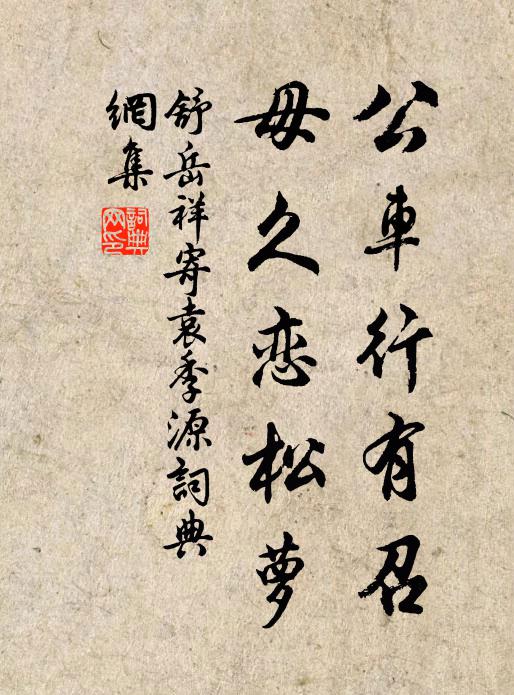 公車行有召
毋久恋松萝
舒岳祥寄袁季源詞典
網集
詞典
网印